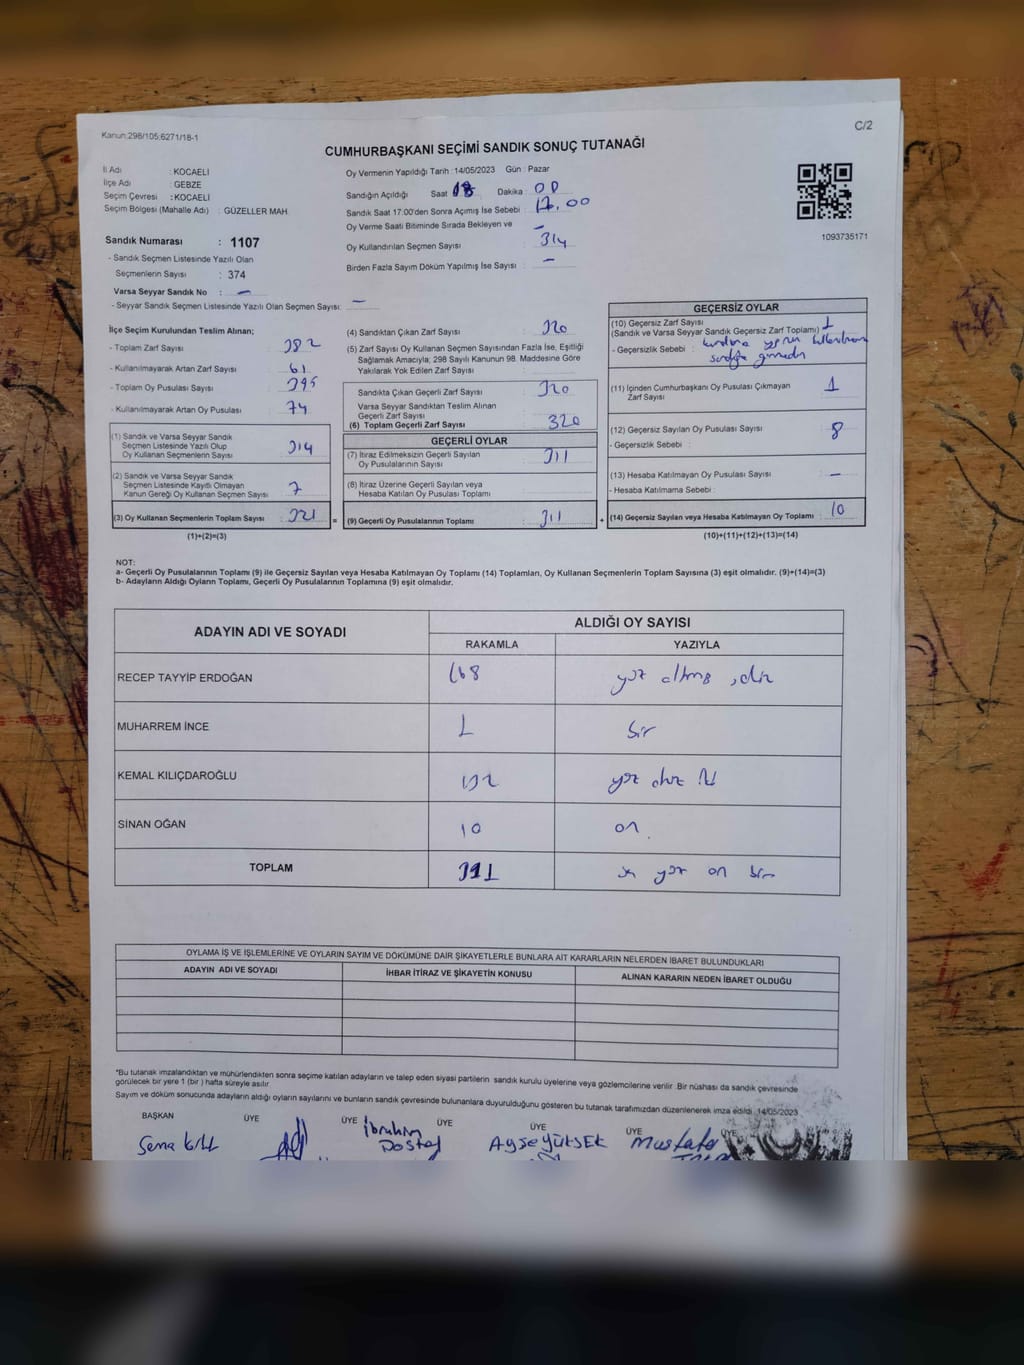 Kanun:298/105;6271/18-1
C/2
CUMHURBAŞKANI SEÇİMİ SANDIK SONUÇ TUTANAĞI
İl Adı : KOCAELİ
İlçe Adı : GEBZE
Seçim Çevresi : KOCAELİ
Seçim Bölgesi (Mahalle Adı) : GÜZELLER MAH.
Sandık Numarası : 1107
- Sandık Seçmen Listesinde Yazılı Olan
Seçmenlerin Sayısı : 374
Varsa Seyyar Sandık No : -
- Seyyar Sandık Seçmen Listesinde Yazılı Olan Seçmen Sayısı: -
Oy Vermenin Yapıldığı Tarih :14/05/2023 Gün : Pazar
Sandığın Açıldığı Saat 18 Dakika 00
Sandık Saat 17:00'den Sonra Açımış İse Sebebi : 17.00
Oy Verme Saati Bitiminde Sırada Bekleyen ve -
Oy Kullandırılan Seçmen Sayısı : 314
Birden Fazla Sayım Döküm Yapılmış İse Sayısı : -
1093735171
İlçe Seçim Kurulundan Teslim Alınan;
- Toplam Zarf Sayısı : 382
- Kullanılmayarak Artan Zarf Sayısı : 61
- Toplam Oy Pusulası Sayısı : 395
- Kullanılmayarak Artan Oy Pusulası : 74
(1) Sandık ve Varsa Seyyar Sandık
Seçmen Listesinde Yazılı Olup
Oy Kullanan Seçmenlerin Sayısı : 314
(2) Sandık ve Varsa Seyyar Sandık
Seçmen Listesinde Kayıtlı Olmayan
Kanun Gereği Oy Kullanan Seçmen Sayısı : 7
(3) Oy Kullanan Seçmenlerin Toplam Sayısı : 321 =
(1)+(2)=(3)
(4) Sandıktan Çıkan Zarf Sayısı : 320
(5) Zarf Sayısı Oy Kullanan Seçmen Sayısından Fazla İse, Eşitliği
Sağlamak Amacıyla; 298 Sayılı Kanunun 98. Maddesine Göre
Yakılarak Yok Edilen Zarf Sayısı :
Sandıkta Çıkan Geçerli Zarf Sayısı : 320
Varsa Seyyar Sandıktan Teslim Alınan
Geçerli Zarf Sayısı :
(6) Toplam Geçerli Zarf Sayısı : 320
GEÇERLİ OYLAR
(7) İtiraz Edilmeksizin Geçerli Sayılan
Oy Pusulalarının Sayısı : 311
(8) İtiraz Üzerine Geçerli Sayılan veya
Hesaba Katılan Oy Pusulası Toplamı :
(9) Geçerli Oy Pusulalarının Toplamı : 311 +
GEÇERSİZ OYLAR
(10) Geçersiz Zarf Sayısı
(Sandık ve Varsa Seyyar Sandık Geçersiz Zarf Toplamı) : 1
- Geçersizlik Sebebi :
(11) İçinden Cumhurbaşkanı Oy Pusulası Çıkmayan
Zarf Sayısı : 1
(12) Geçersiz Sayılan Oy Pusulası Sayısı : 8
- Geçersizlik Sebebi :
(13) Hesaba Katılmayan Oy Pusulası Sayısı : -
- Hesaba Katılmama Sebebi :
(14) Geçersiz Sayılan veya Hesaba Katılmayan Oy Toplamı : 10
(10)+(11)+(12)+(13)=(14)
NOT:
a- Geçerli Oy Pusulalarının Toplamı (9) ile Geçersiz Sayılan veya Hesaba Katılmayan Oy Toplamı (14) Toplamları, Oy Kullanan Seçmenlerin Toplam Sayısına (3) eşit olmalıdır. (9)+(14)=(3)
b- Adayların Aldığı Oyların Toplamı, Geçerli Oy Pusulalarının Toplamına (9) eşit olmalıdır.
ADAYIN ADI VE SOYADI
ALDIĞI OY SAYISI
RAKAMLA YAZIYLA
RECEP TAYYİP ERDOĞAN 168 yüz altmış sekiz
MUHARREM İNCE 1 bir
KEMAL KILIÇDAROĞLU 132 yüz otuz iki
SİNAN OĞAN 10 on
TOPLAM 311 üç yüz on bir
OYLAMA İŞ VE İŞLEMLERİNE VE OYLARIN SAYIM VE DÖKÜMÜNE DAİR ŞİKAYETLERLE BUNLARA AİT KARARLARIN NELERDEN İBARET BULUNDUKLARI
ADAYIN ADI VE SOYADI İHBAR İTİRAZ VE ŞİKAYETİN KONUSU ALINAN KARARIN NEDEN İBARET OLDUĞU
*Bu tutanak imzalandıktan ve mühürlendikten sonra seçime katılan adayların ve talep eden siyasi partilerin sandık kurulu üyelerine veya gözlemcilerine verilir. Bir nüshası da sandık çevresinde
görülecek bir yere 1 (bir ) hafta süreyle asılır.
Sayım ve döküm sonucunda adayların aldığı oyların sayılarını ve bunların sandık çevresinde bulunanlara duyurulduğunu gösteren bu tutanak tarafımızdan düzenlenerek imza edildi. 14/05/2023
BAŞKAN ÜYE ÜYE ÜYE ÜYE ÜYE ÜYE
Sema İbrahim Dostal Ayşe YÜKSEK Mustafa